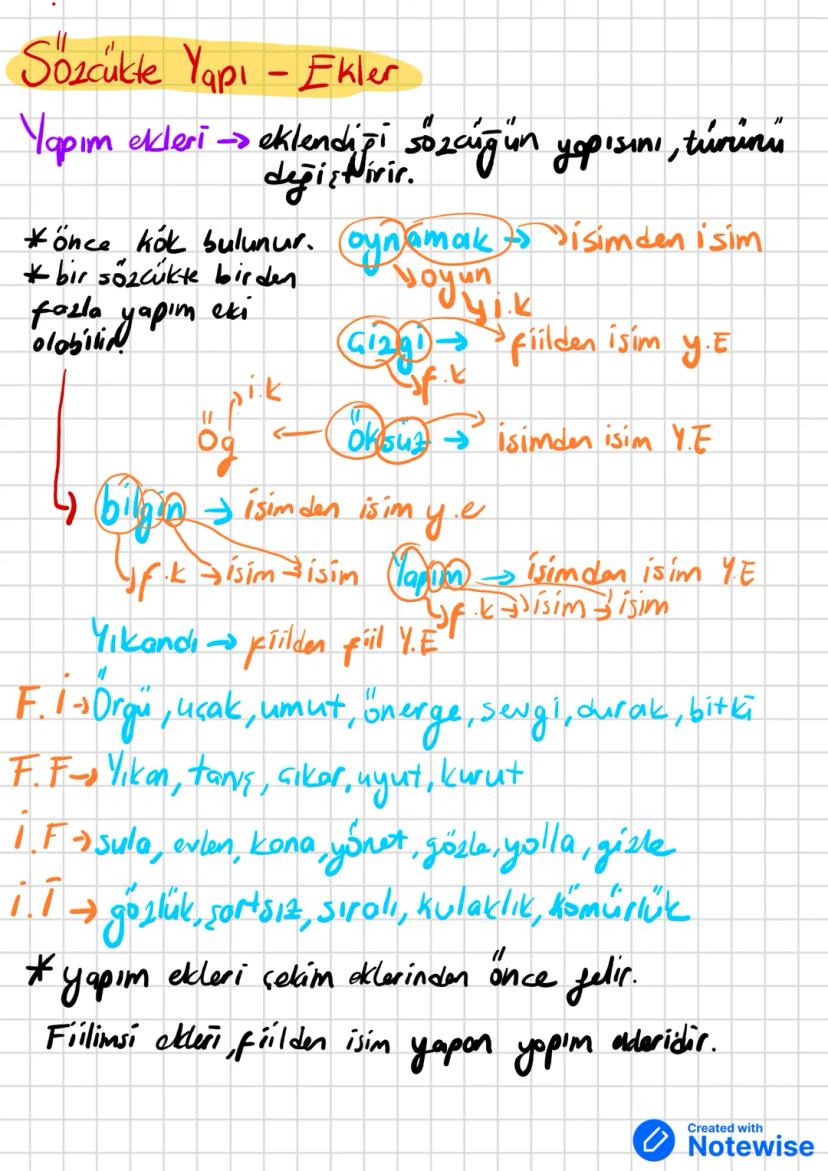 Sözcükte Yapı - Ekler
Yapım ekleri → eklendiği sözcüğün yapısını, türünü
değiştirir.
* önce kök bulunur.
* bir sözcükte birden
fazla yapım eki
olabilir.
oynamak → isimden isim
oyun
i.k
Çizgi → fiilden isim y.E
f.k
i.k
Öğ ← Öksüz → isimden isim Y.E
bilgin → isimden isim y.e
f.k → isim → isim
Yapım → isimden isim Y.E
f.k → isim → isim
Yıkandı → fiilden fiil Y.E
F.İ → Örgü, uçak, umut, önerge, sevgi, durak, bitki
F.F → Yıkan, tanış, çıkar, uyut, kurut
İ.F → sula, evlen, kana, yönet, gözle, yolla, gizle
İ.İ → gözlük, şartsız, sıralı, kulaklık, kömürlük
* yapım ekleri çekim eklerinden önce gelir.
Fiilimsi ekleri, fiilden isim yapan yapım ekleridir.
Created with
Notewise